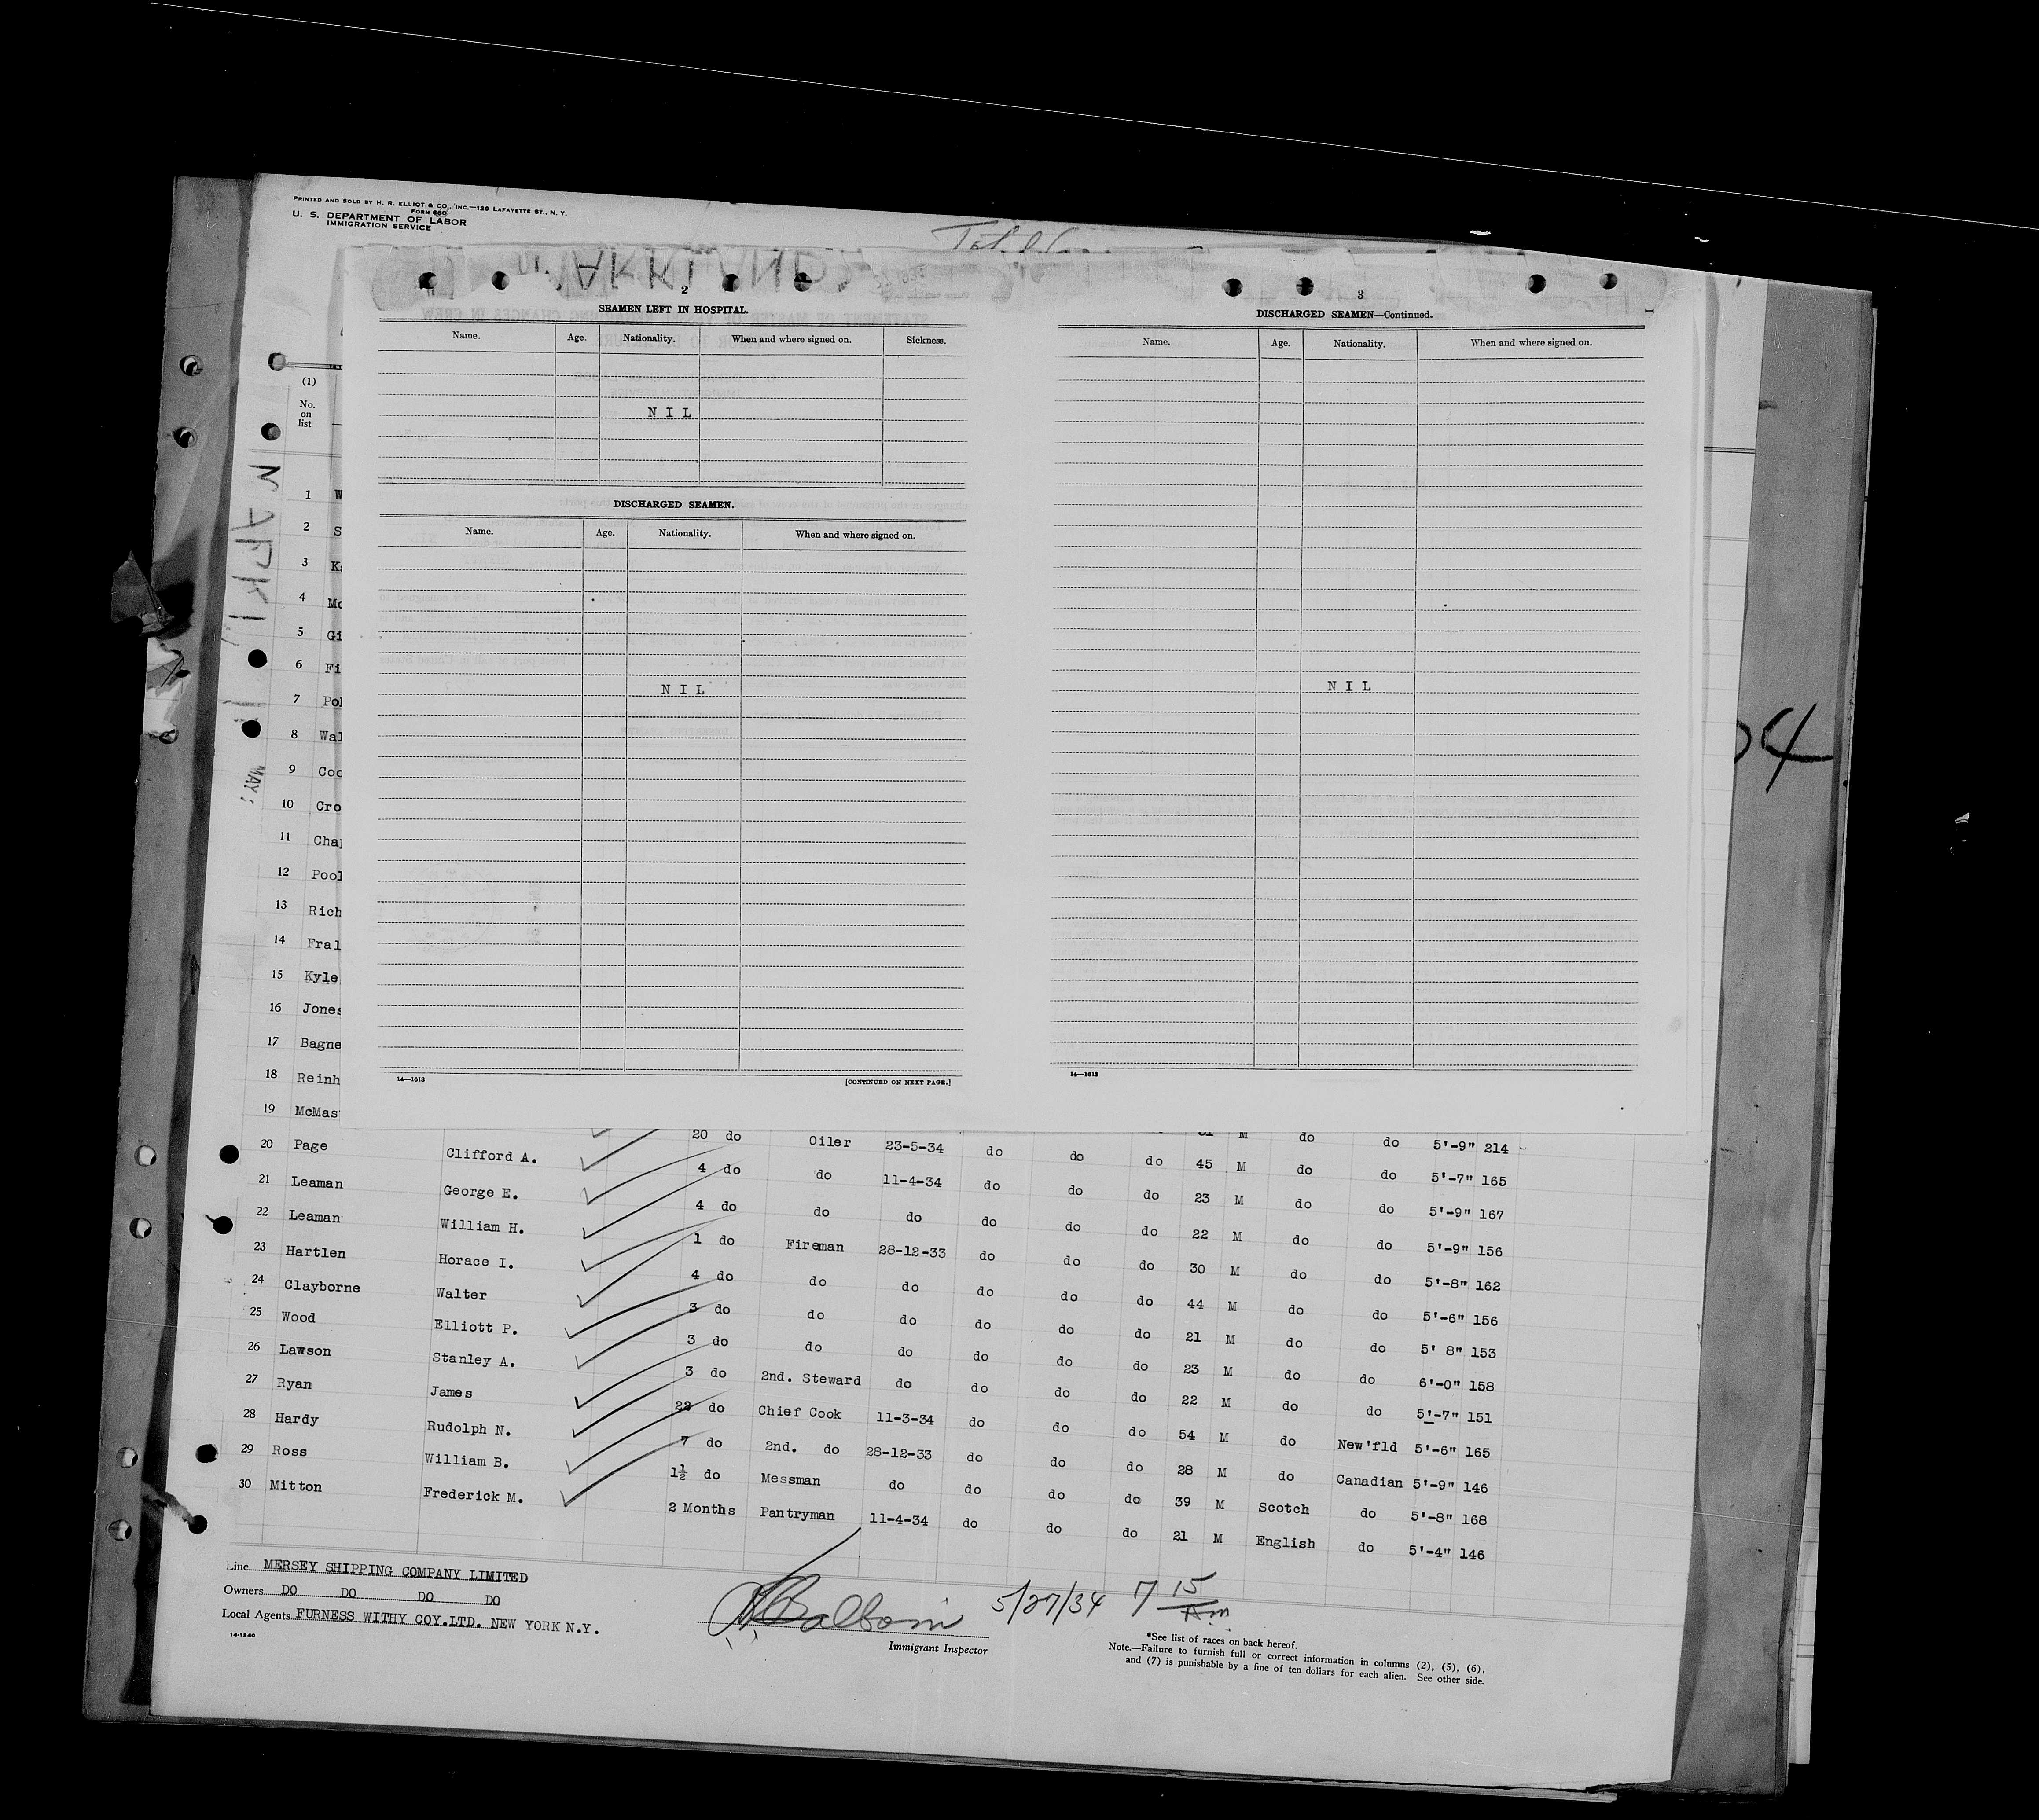 PRINTED AND SOLD BY H. R. ELLIOT & CO., INC.—129 LAFAYETTE ST., N. Y.
FORM 660
U. S. DEPARTMENT OF LABOR
IMMIGRATION SERVICE
2
SEAMEN LEFT IN HOSPITAL.
Name. Age. Nationality. When and where signed on. Sickness.
NIL
DISCHARGED SEAMEN.
Name. Age. Nationality. When and where signed on.
NIL
14—1613 [CONTINUED ON NEXT PAGE.]
3
DISCHARGED SEAMEN—Continued.
Name. Age. Nationality. When and where signed on.
NIL
14—1613
(1)
No.
on
list
MAY
1 W
2 S
3 Ka
4 Mc
5 Gi
6 Fi
7 Pol
8 Wal
9 Coo
10 Cro
11 Cha
12 Pool
13 Rich
14 Fral
15 Kyle
16 Jones
17 Bagne
18 Reinh M do do 5'-9" 214
19 McMas 20 do Oiler 23-5-34 do do do 45 M do do 5'-7" 165
20 Page Clifford A. 4 do do 11-4-34 do do do 23 M do do 5'-9" 167
21 Leaman George E. 4 do do do do do do 22 M do do 5'-9" 156
22 Leaman William H. 1 do Fireman 28-12-33 do do do 30 M do do 5'-8" 162
23 Hartlen Horace I. 4 do do do do do do 44 M do do 5'-6" 156
24 Clayborne Walter 3 do do do do do do 21 M do do 5' 8" 153
25 Wood Elliott P. 3 do do do do do do 23 M do do 6'-0" 158
26 Lawson Stanley A. 3 do 2nd. Steward do do do do 22 M do do 5'-7" 151
27 Ryan James 22 do Chief Cook 11-3-34 do do do 54 M do New'fld 5'-6" 165
28 Hardy Rudolph N. 7 do 2nd. do 28-12-33 do do do 28 M do Canadian 5'-9" 146
29 Ross William B. 1½ do Messman do do do do 39 M Scotch do 5'-8" 168
30 Mitton Frederick M. 2 Months Pantryman 11-4-34 do do do 21 M English do 5'-4" 146
Line MERSEY SHIPPING COMPANY LIMITED
Owners DO DO DO DO
Local Agents FURNESS WITHY COY.LTD. NEW YORK N.Y.
14-1240
5/27/34 7 15 Am
Immigrant Inspector
*See list of races on back hereof.
Note.—Failure to furnish full or correct information in columns (2), (5), (6),
and (7) is punishable by a fine of ten dollars for each alien. See other side.
04